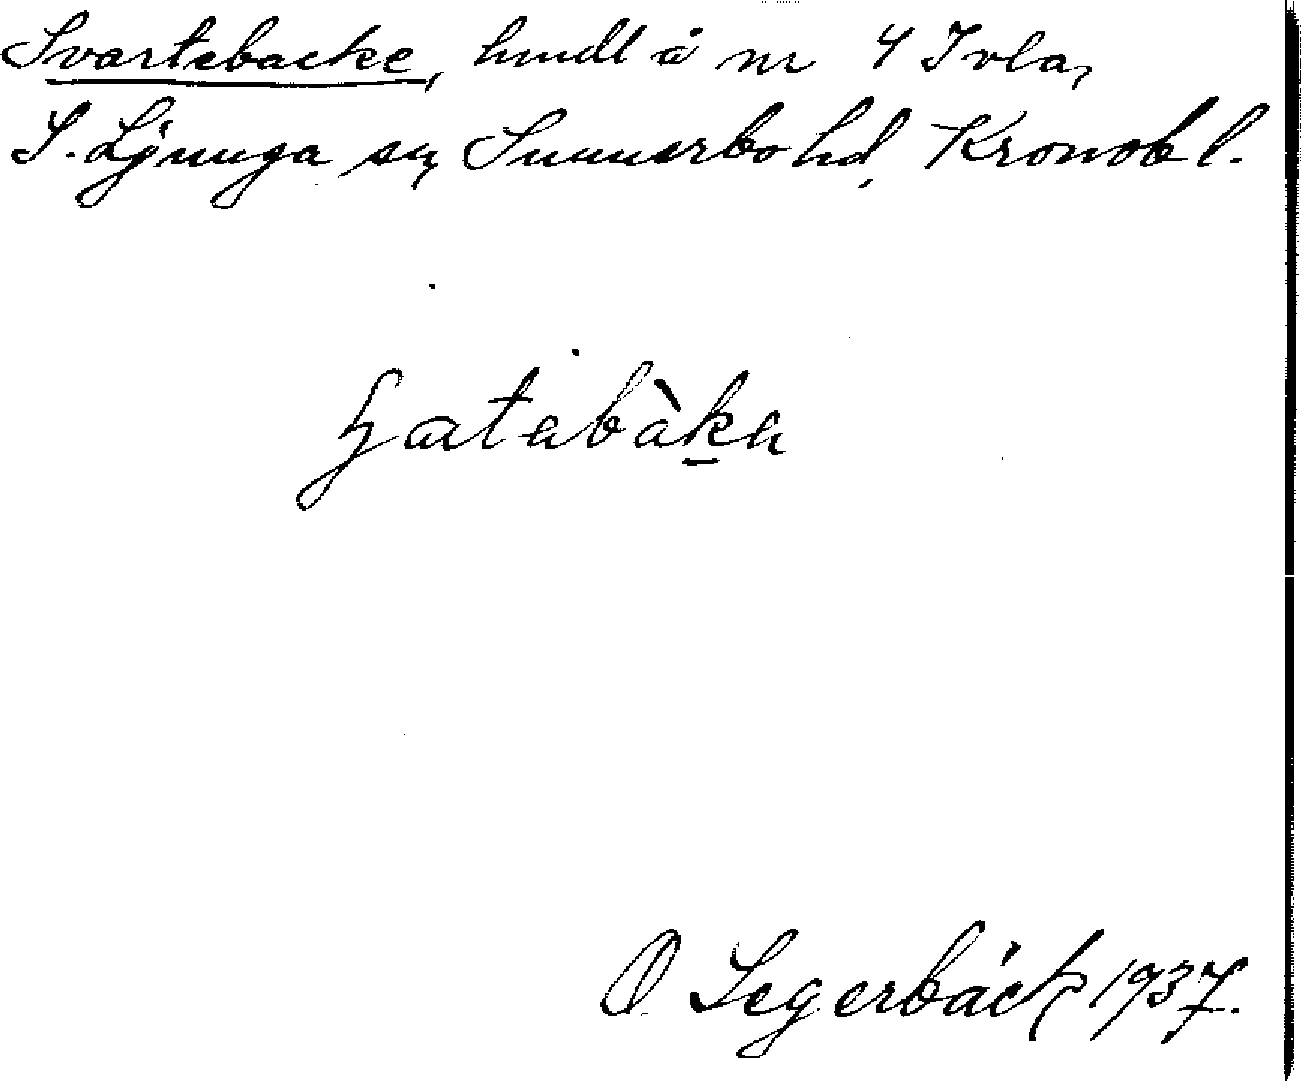 Svartebacke, hmdl å nr 4 Ivla,
S. Ljunga sn, Sunnerbo hd, Kronob l.
O Segerbäck 1937.